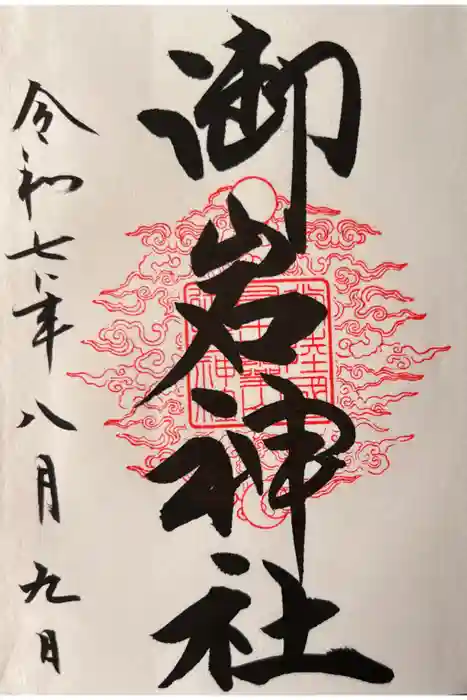 御岩神社
令和七年八月九日